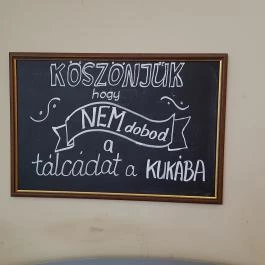 KÖSZÖNJÜK
hogy
NEM dobod
a
tálcádat a KUKÁBA